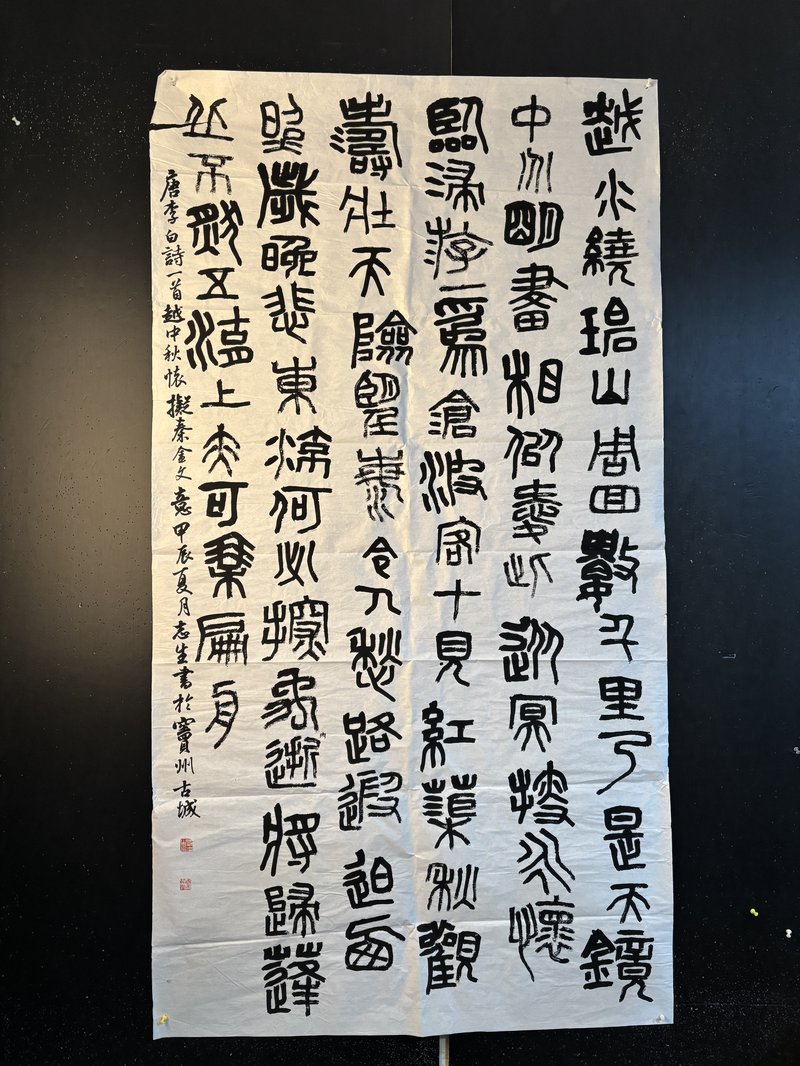 越水繞碧山周回數千里乃是天鏡
中分明畫相似愛此從冥搜永懷
臨湍游一為滄波客十見紅蕖秋觀
濤壯天險望海令人愁路遐迫西
照歲晚悲東流何必探禹逝將歸蓬
丘不然五湖上亦可乘扁舟
唐李白詩一首越中秋懷擬秦金文意甲辰夏月志生書於竇州古城